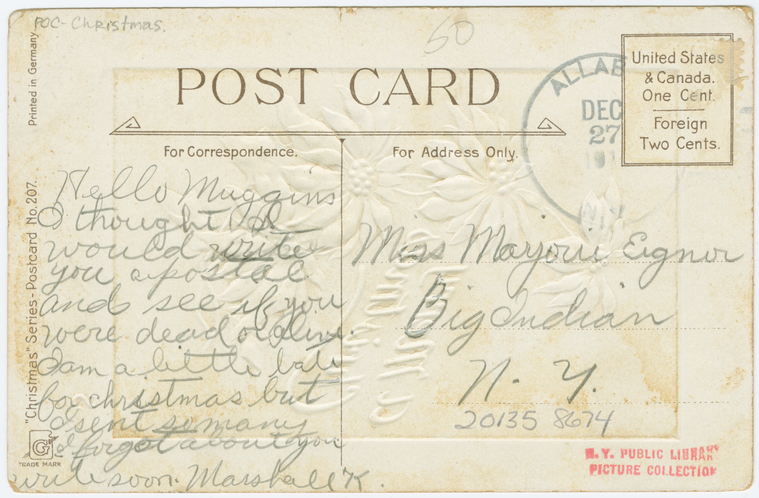 POC-Christmas.
50
Printed in Germany
"Christmas" Series - Postcard No. 207.
G
TRADE MARK
POST CARD
For Correspondence.
For Address Only.
United States
& Canada.
One Cent.
Foreign
Two Cents.
ALLAB
DEC
27
N.Y.
Hello Muggins
I thought I
would write
you a postal
and see if you
were dead or alive.
I am a little late
for christmas but
I sent so many
I forgot about you
write soon. Marshall K.
Miss Marjorie Eignor
Big Indian
N. Y.
20135 8674
N.Y. PUBLIC LIBRARY
PICTURE COLLECTION